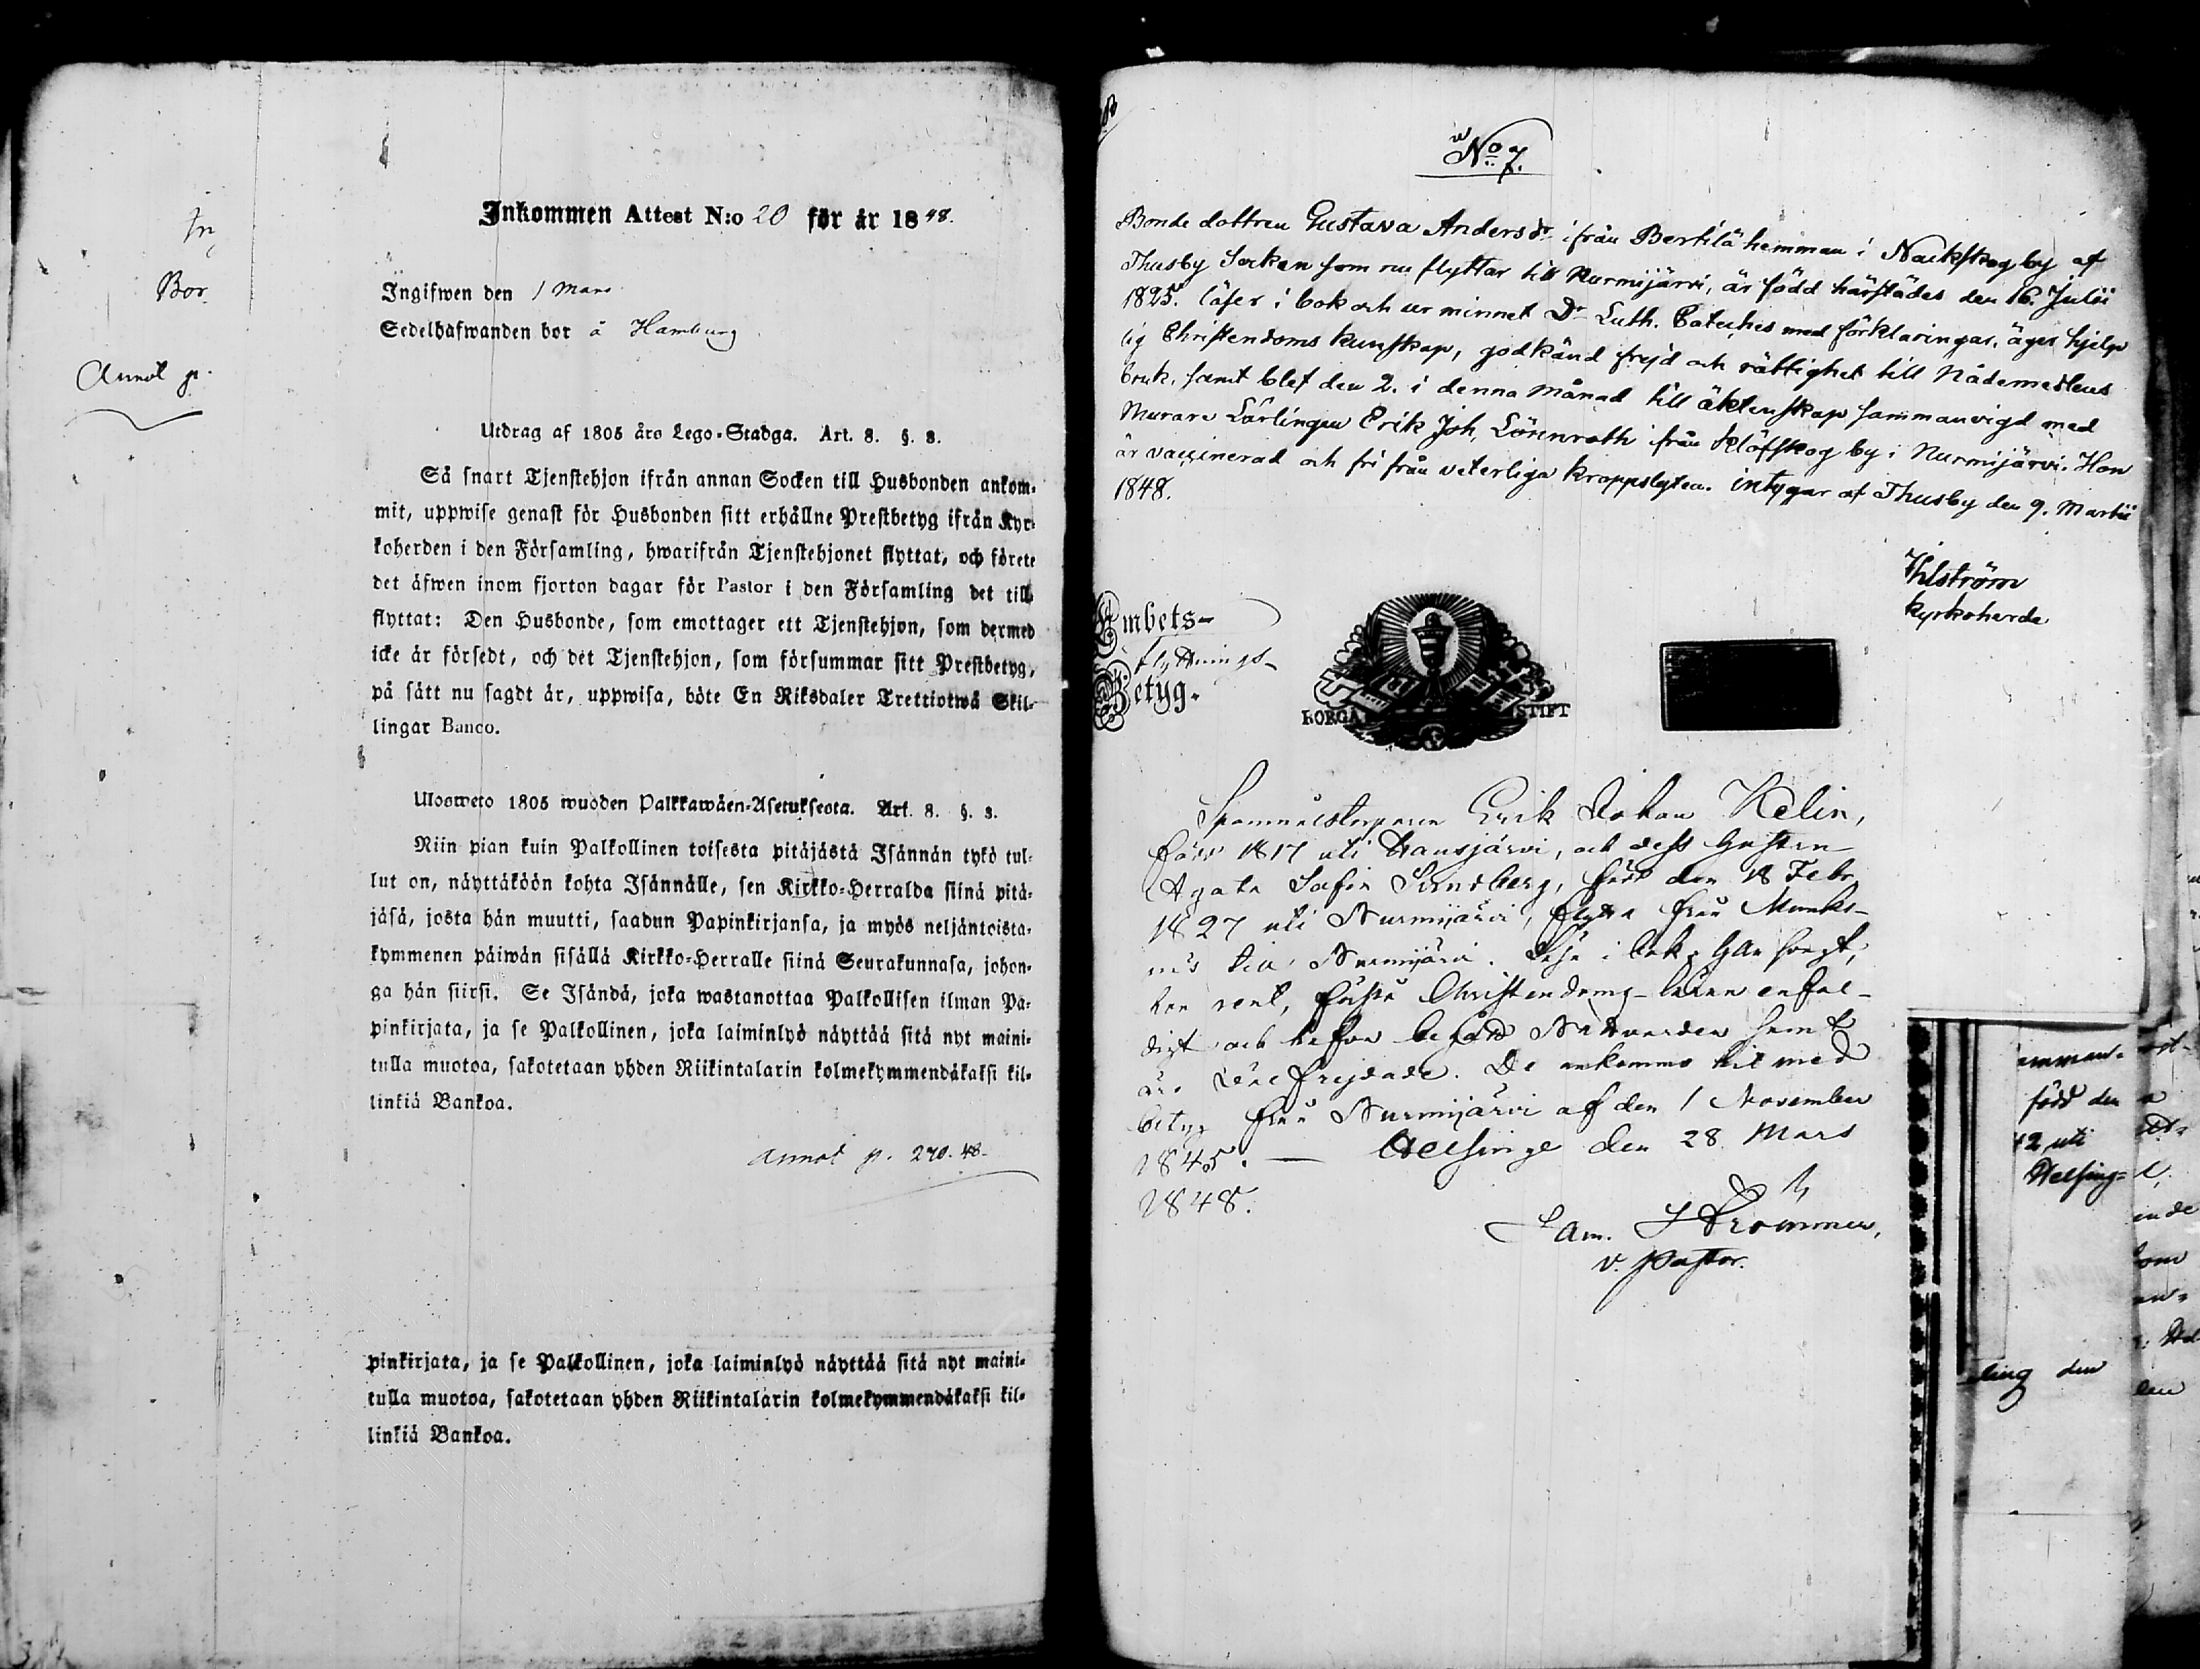 In
Bor
Annot p.
Inkommen Attest N:o 20 för år 1848.
Ingifwen den 1 Mars
Sedelhafwanden bor å Hamburg
Utdrag af 1805 års Lego-Stadga. Art. 8. §. 8.
Så snart Tjenstehjon ifrån annan Socken till Husbonden ankom-
mit, uppwise genast för Husbonden sitt erhållne Prestbetyg ifrån Kyr-
koherden i den Församling, hwarifrån Tjenstehjonet flyttat, och förete
det äfwen inom fjorton dagar för Pastor i den Församling det till
flyttat: Den Husbonde, som emottager ett Tjenstehjon, som dermed
icke är försedt, och det Tjenstehjon, som försummar sitt Prestbetyg,
på sätt nu sagdt är, uppwisa, böte En Riksdaler Trettiotwå Skil-
lingar Banco.
Ulosweto 1805 wuoden Palkkawäen-Asetuksesta. Art. 8. §. 8.
Niin pian kuin Palkollinen toisesta pitäjästä Isännän tykö tul-
lut on, näyttäköön kohta Isännälle, sen Kirkko-Herralda siinä pitä-
jäsä, josta hän muutti, saadun Papinkirjansa, ja myös neljäntoista-
kymmenen päiwän sisällä Kirkko-Herralle siinä Seurakunnasa, johon-
ga hän siirsi. Se Isändä, joka wastanottaa Palkollisen ilman Pa-
pinkirjata, ja se Palkollinen, joka laiminlyö näyttää sitä nyt maini-
tulla muotoa, sakotetaan yhden Riikintalarin kolmekymmendäkaksi kil-
linkiä Bankoa.
Annot p. 270. 48.
pinkirjata, ja se Palkollinen, joka laiminlyö näyttää sitä nyt maini-
tulla muotoa, sakotetaan yhden Riikintalarin kolmekymmendäkaksi kil-
linkiä Bankoa.
No 7.
Bonde dottren Gustava Andersdr ifrån Bertilä hemman i Nackskog by af
Thusby Socken som nu flyttar till Nurmijärvi, är född härstädes den 16. Julii
1825. läser i bok och ur minnet Dr Luth. Cateches med förklaringar, äger hjelp
lig Christendoms kunskap, godkänd frejd och rättighet till Nådemedlens
bruk, samt blef den 2. i denna Månad till äktenskap sammanvigd med
Murare Lärlingen Erik Joh. Lönnroth från Klöfskog by i Nurmijärvi. Hon
är vaccinerad och fri från veterliga kroppslyten. intygar af Thusby den 9. Martii
1848.
Ihlström
Kyrkoherde
Embets-
flyttnings-
Betyg.
BORGÅ STIFT
Erik Johan Helin,
född 1817 uti Hausjärvi, och dess hustru
Agata Sofia Sundberg, född den 18 Febr.
1827 uti Nurmijärvi, flytta från Munks-
näs till Nurmijärvi. Läsa i bok, han svagt,
hon rent, förstå Christendoms-läran enfal-
digt och hafva begått Nattvarden samt
äro välfrejdade. De ankommo hit med
betyg från Nurmijärvi af den 1 November
1845. — Helsinge den 28 Mars
1848.
Sam. Strömmer,
v. Pastor.
emman-
född den
42 uti
Helsing-
ling den